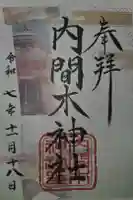 奉拝
内間木神社
令和七年十一月十八日